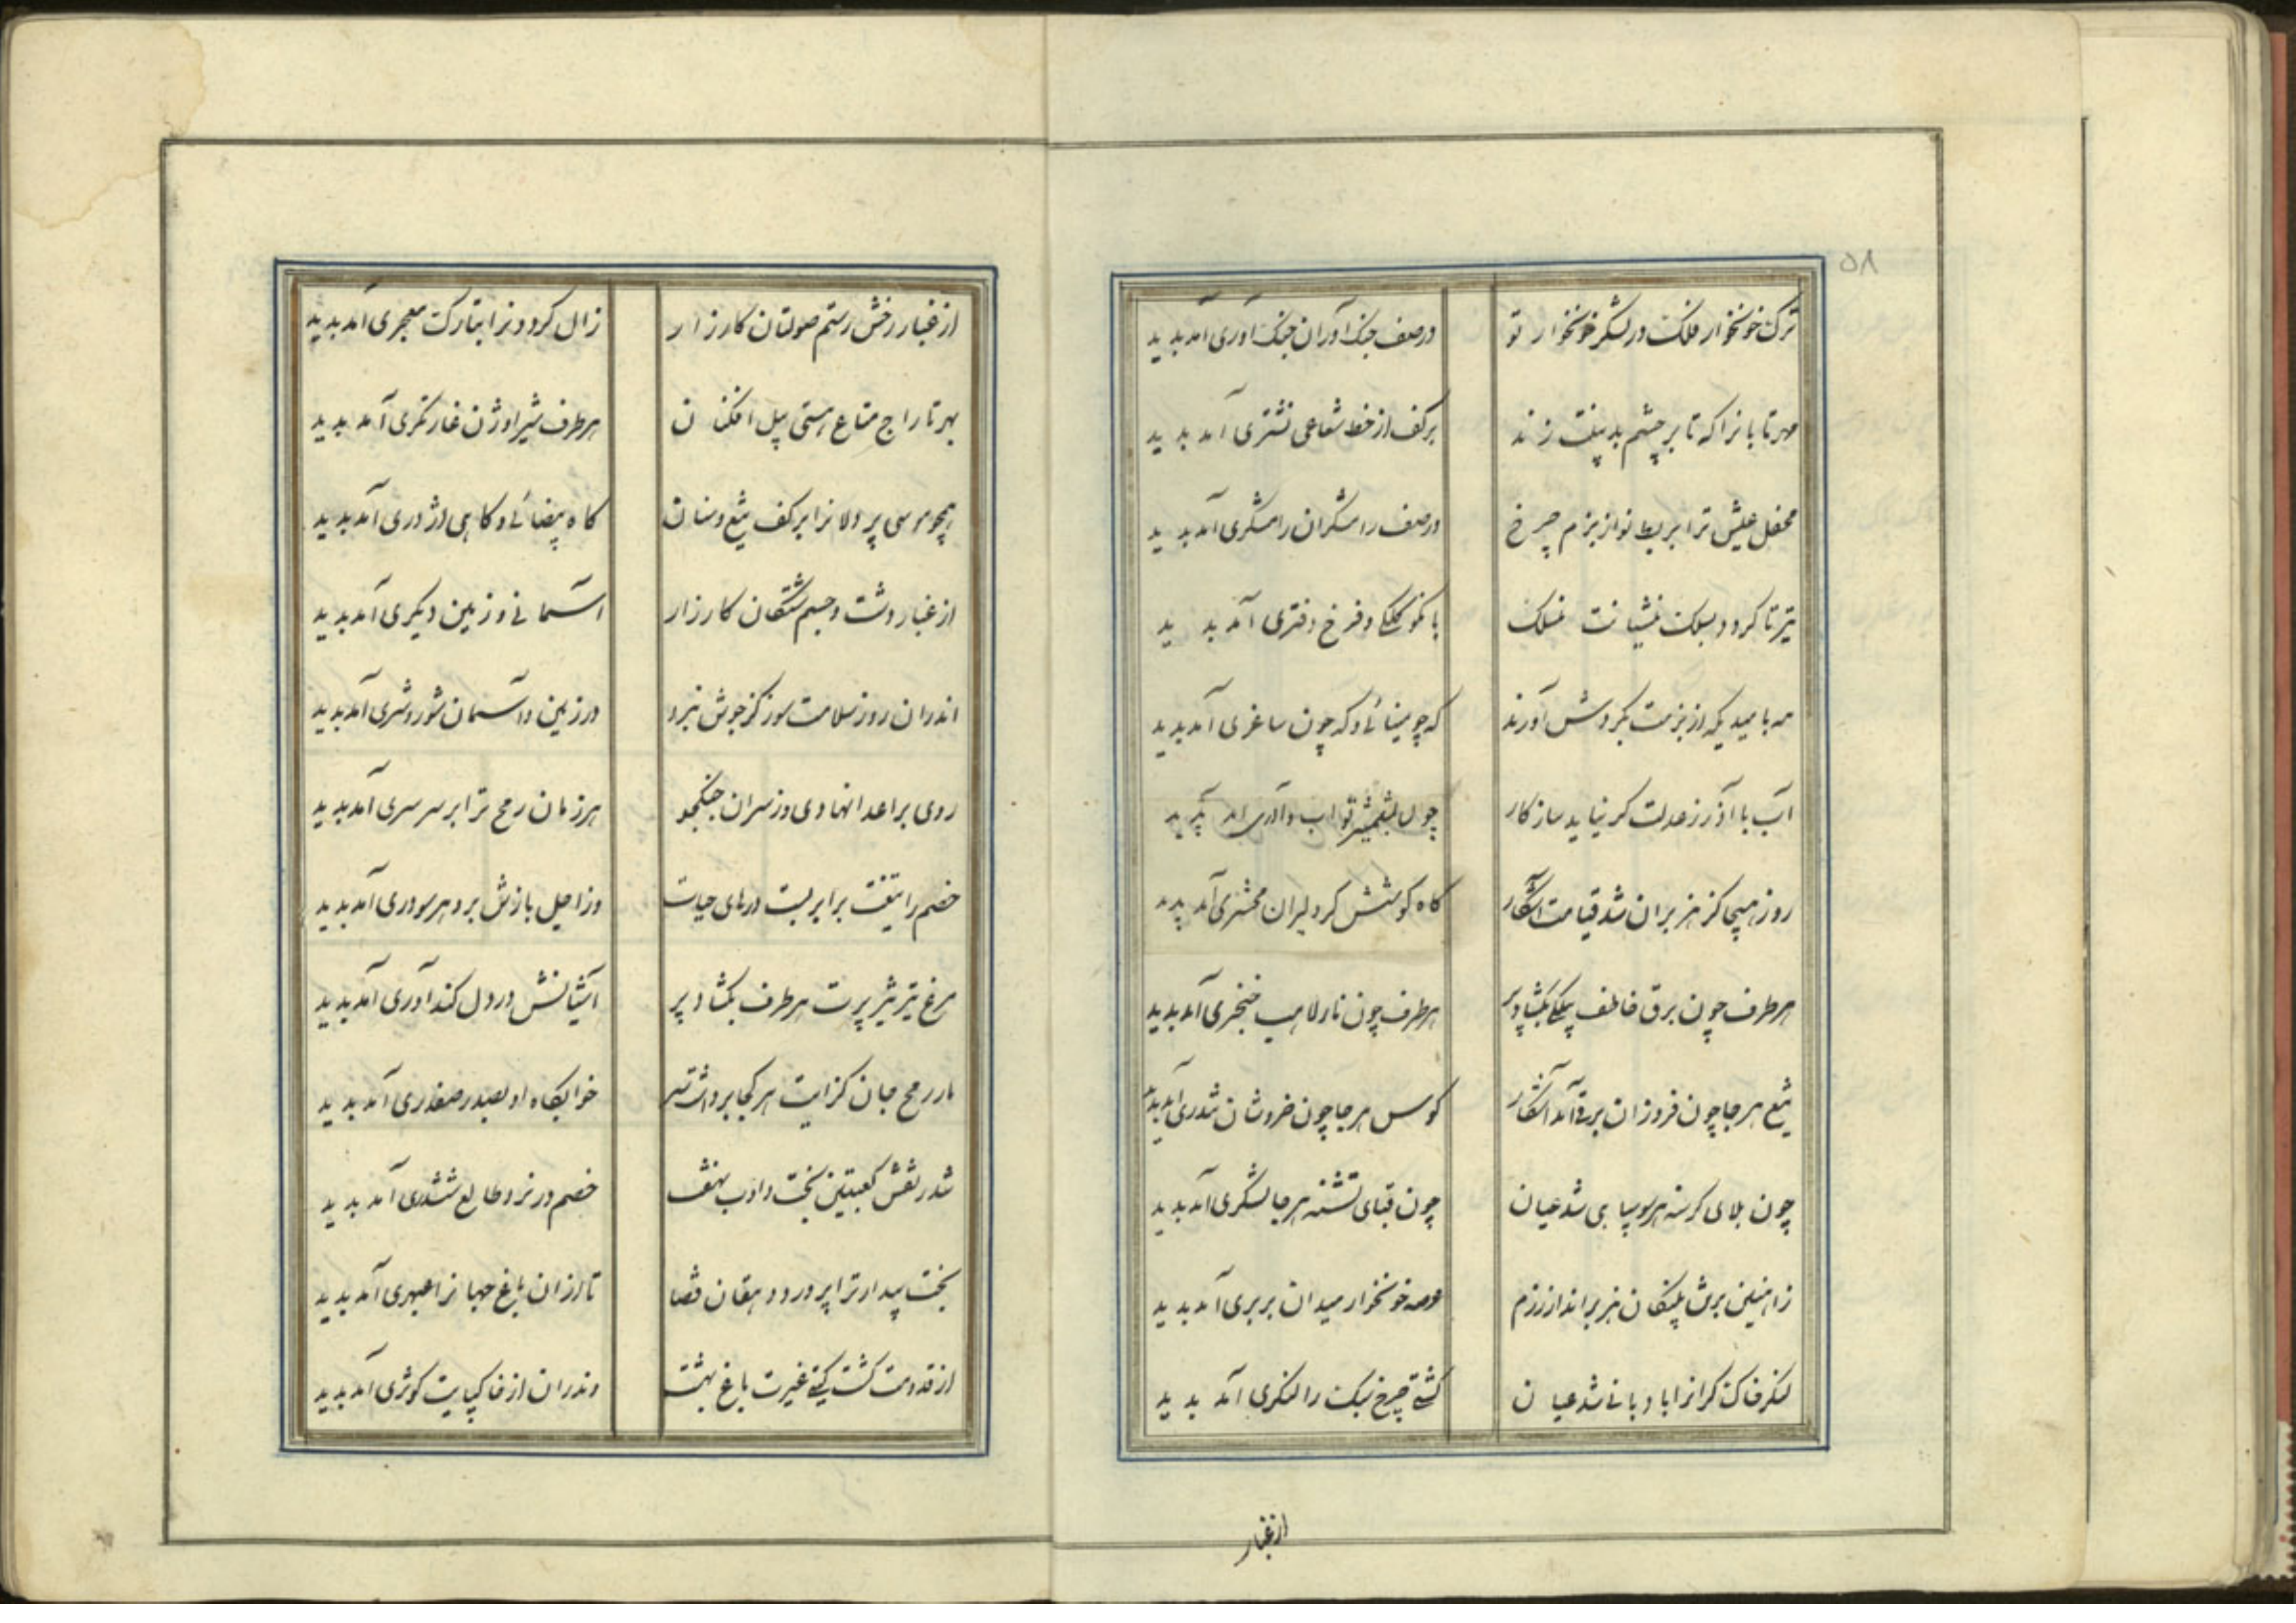 ۵۸
ترک خونخوار فلک در لشکر خونخوار تو
در صف جنک آوران جنک آوری آمد پدید
مهر تابانرا که تا بر چشم بدبینت زند
بر کف از خط شعاعی نشتری آمد پدید
محفل عیش ترا بربط نواز بزم چرخ
در صف رامشکران رامشکری آمد پدید
تیر تا کردد بسلک منشیانت منسلک
با نکو کلکی و فرخ دفتری آمد پدید
مه بامیدیکه از بزمت بکردش آورند
که چو مینائی و که چون ساغری آمد پدید
آب با آذر ز عدلت کر نیاید سازکار
چون بشمشیر تو آب و آذری آمد پدید
روز هیجا کز هژبران شد قیامت آشکار
کاه کوشش کز دلیران محشری آمد پدید
هر طرف چون برق خاطف پیکی بکشاد پر
هر طرف چون نار لاهب خنجری آمد پدید
تیغ هر جا چون فروزان برقی آمد آشکار
کوس هر جا چون خروشان تندری آمد پدید
چون بلای کرسنه هر سو سپاهی شد عیان
چون قبای تشنه هر جا لشکری آمد پدید
زآهنین برش پلنکان هژبر انداز رزم
عرصه خونخوار میدان بربری آمد پدید
لنکر خاک کرانرا بادبانی شد عیان
کشتی چرخ سبک را لنکری آمد پدید
از غبار
از غبار رخش رستم صولتان کارزار
زال کردونرا بتارک معجری آمد پدید
بهر تاراج متاع هستی پیل افکنان
هر طرف شیر اوژن غارتکری آمد پدید
همچو موسی پر دلانرا بر کف تیغ و سنان
کاه بیضائی و کاهی اژدری آمد پدید
از غبار دشت و جسم کشتکان کارزار
آسمانی و زمین دیکری آمد پدید
اندران روز سلامت سوز کز جوش نبرد
در زمین و آسمان شور و شری آمد پدید
روی بر اعدا نهادی وز سران جنکجو
هر زمان رمح ترا بر سر سری آمد پدید
خصم را تیغت برابر بست درهای حیات
وز اجل بازش بر و هر سو دری آمد پدید
مرغ تیر تیز پرت هر طرف بکشاد پر
آشیانش در دل کندآوری آمد پدید
مار رمح جان کزایت هر کجا برداشت سر
خوابکاه او بصدر صفدری آمد پدید
شد ز نقش کعبتین بخت و داوت
خصم در نرد طالع ششدری آمد پدید
بخت بیدار ترا پرورد دهقان قضا
تا ازان باغ جهانرا عبهری آمد پدید
از قدومت کشت کیتی غیرت باغ بهشت
وندران از خاکپایت کوثری آمد پدید